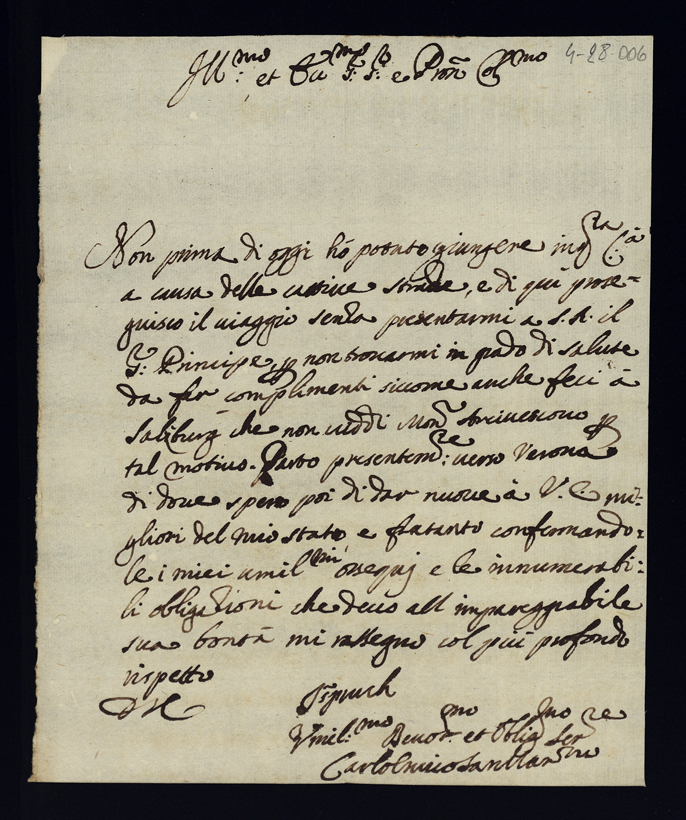 Ill:mo et Ecc:mo S:r S:r e Pron Col:mo
4-28-006
Non prima di oggi hò potuto giungere in q:ta Cà
a causa delle cattive strade, e di qui prose=
guisco il viaggio senza presentarmi a S. A. il
S:r Principe, p non trovarmi in grado di salute
da far complimenti siccome anche feci à
Salzburg che non viddi Mon:r Arcivescovo p
tal motivo. Parto presentem:te verso Verona
di dove spero poi di dar nuove à V. E. mi=
gliori del mio stato e fratanto confermando=
le i miei umil:mi ossequj e le innumerabi=
li obligazioni che devo all impareggiabile
sua bontà mi rassegno col più profondo
rispetto
D V E
Ispruch
Umil:mo Devot:mo et Oblig:mo Ser:re
Carlo